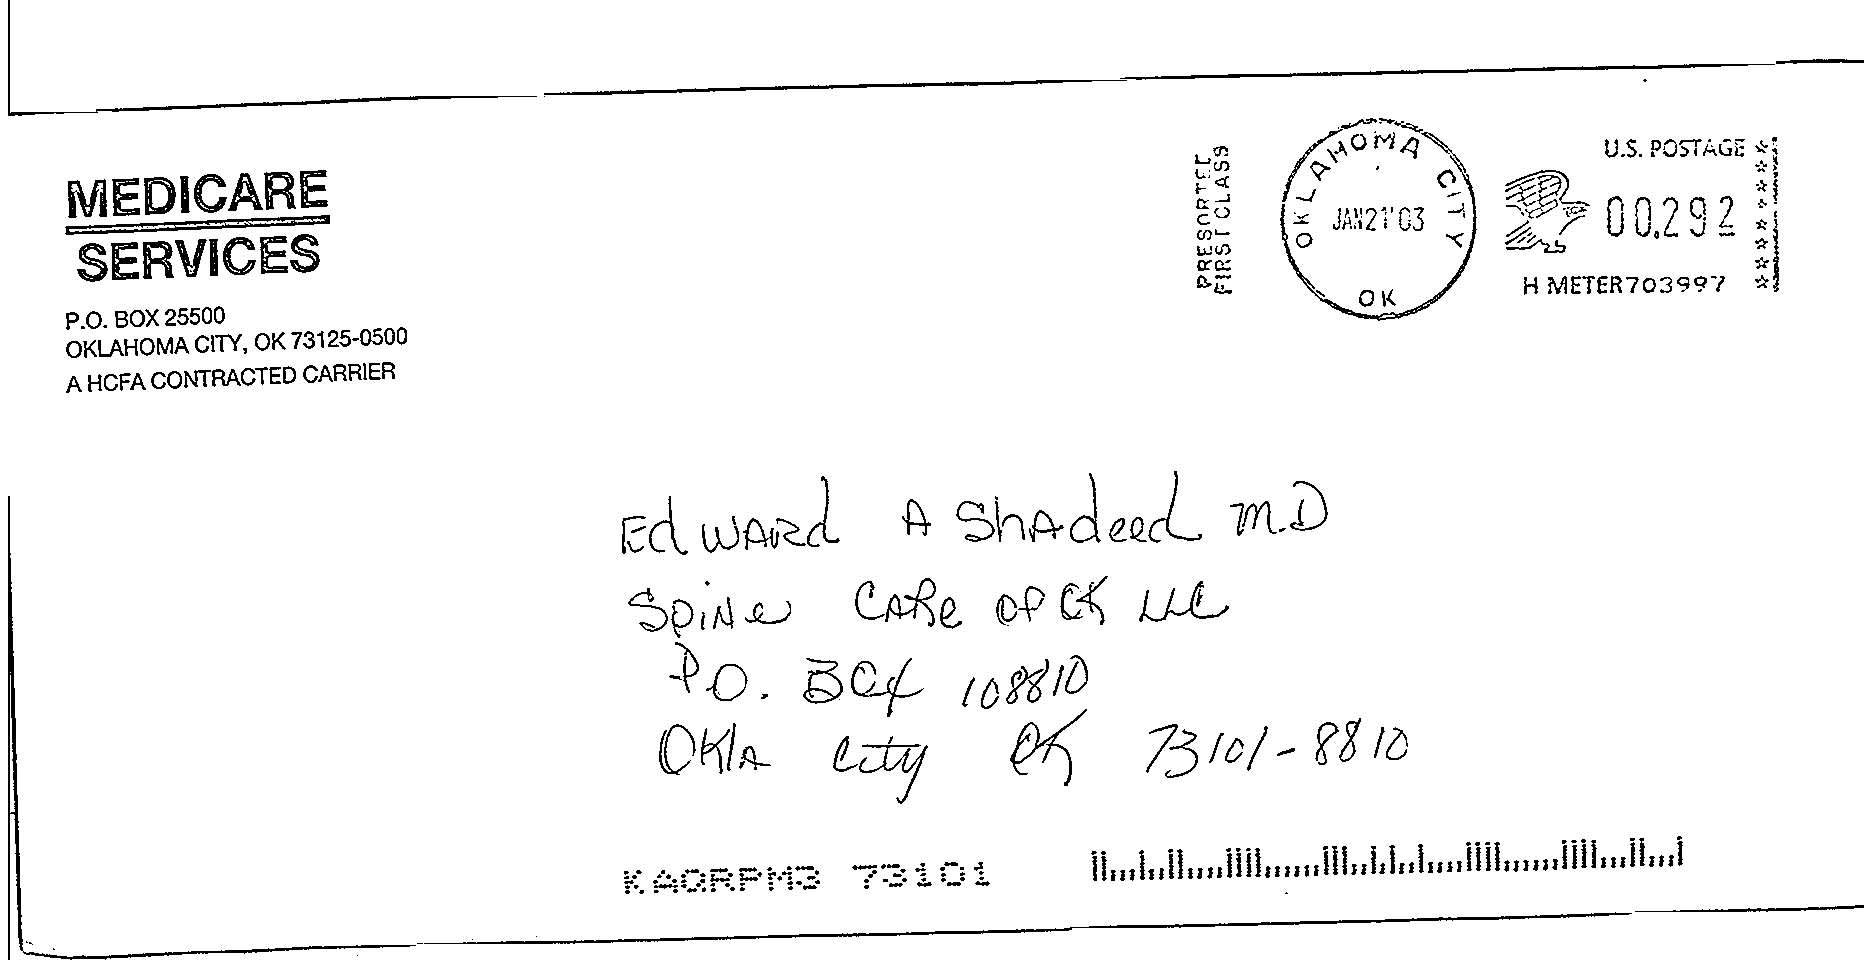 MEDICARE
SERVICES
P.O. BOX 25500
OKLAHOMA CITY, OK 73125-0500
A HCFA CONTRACTED CARRIER
PRESORTED
FIRST CLASS
OKLAHOMA CITY
JAN21'03
OK
U.S. POSTAGE
00.292
H METER703997
Edward A Shadeed M.D
Spine Care of OK LLC
P.O. Box 108810
Okla City OK 73101-8810
KAQRPM3 73101